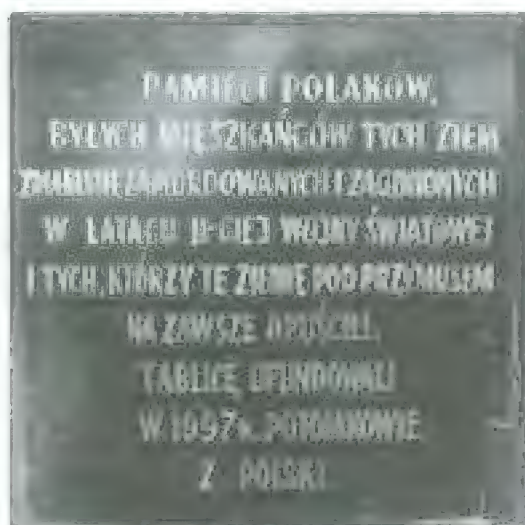 PAMIĘCI POLAKÓW,
BYŁYCH MIESZKAŃCÓW TYCH ZIEM
ZAMORDOWANYCH I ZAGINIONYCH
W LATACH II-GIEJ WOJNY ŚWIATOWEJ
I TYCH, KTÓRZY TE ZIEMIE POD PRZYMUSEM
NA ZAWSZE OPUŚCILI.
TABLICĘ UFUNDOWALI
W 1997 r.
Z POLSKI